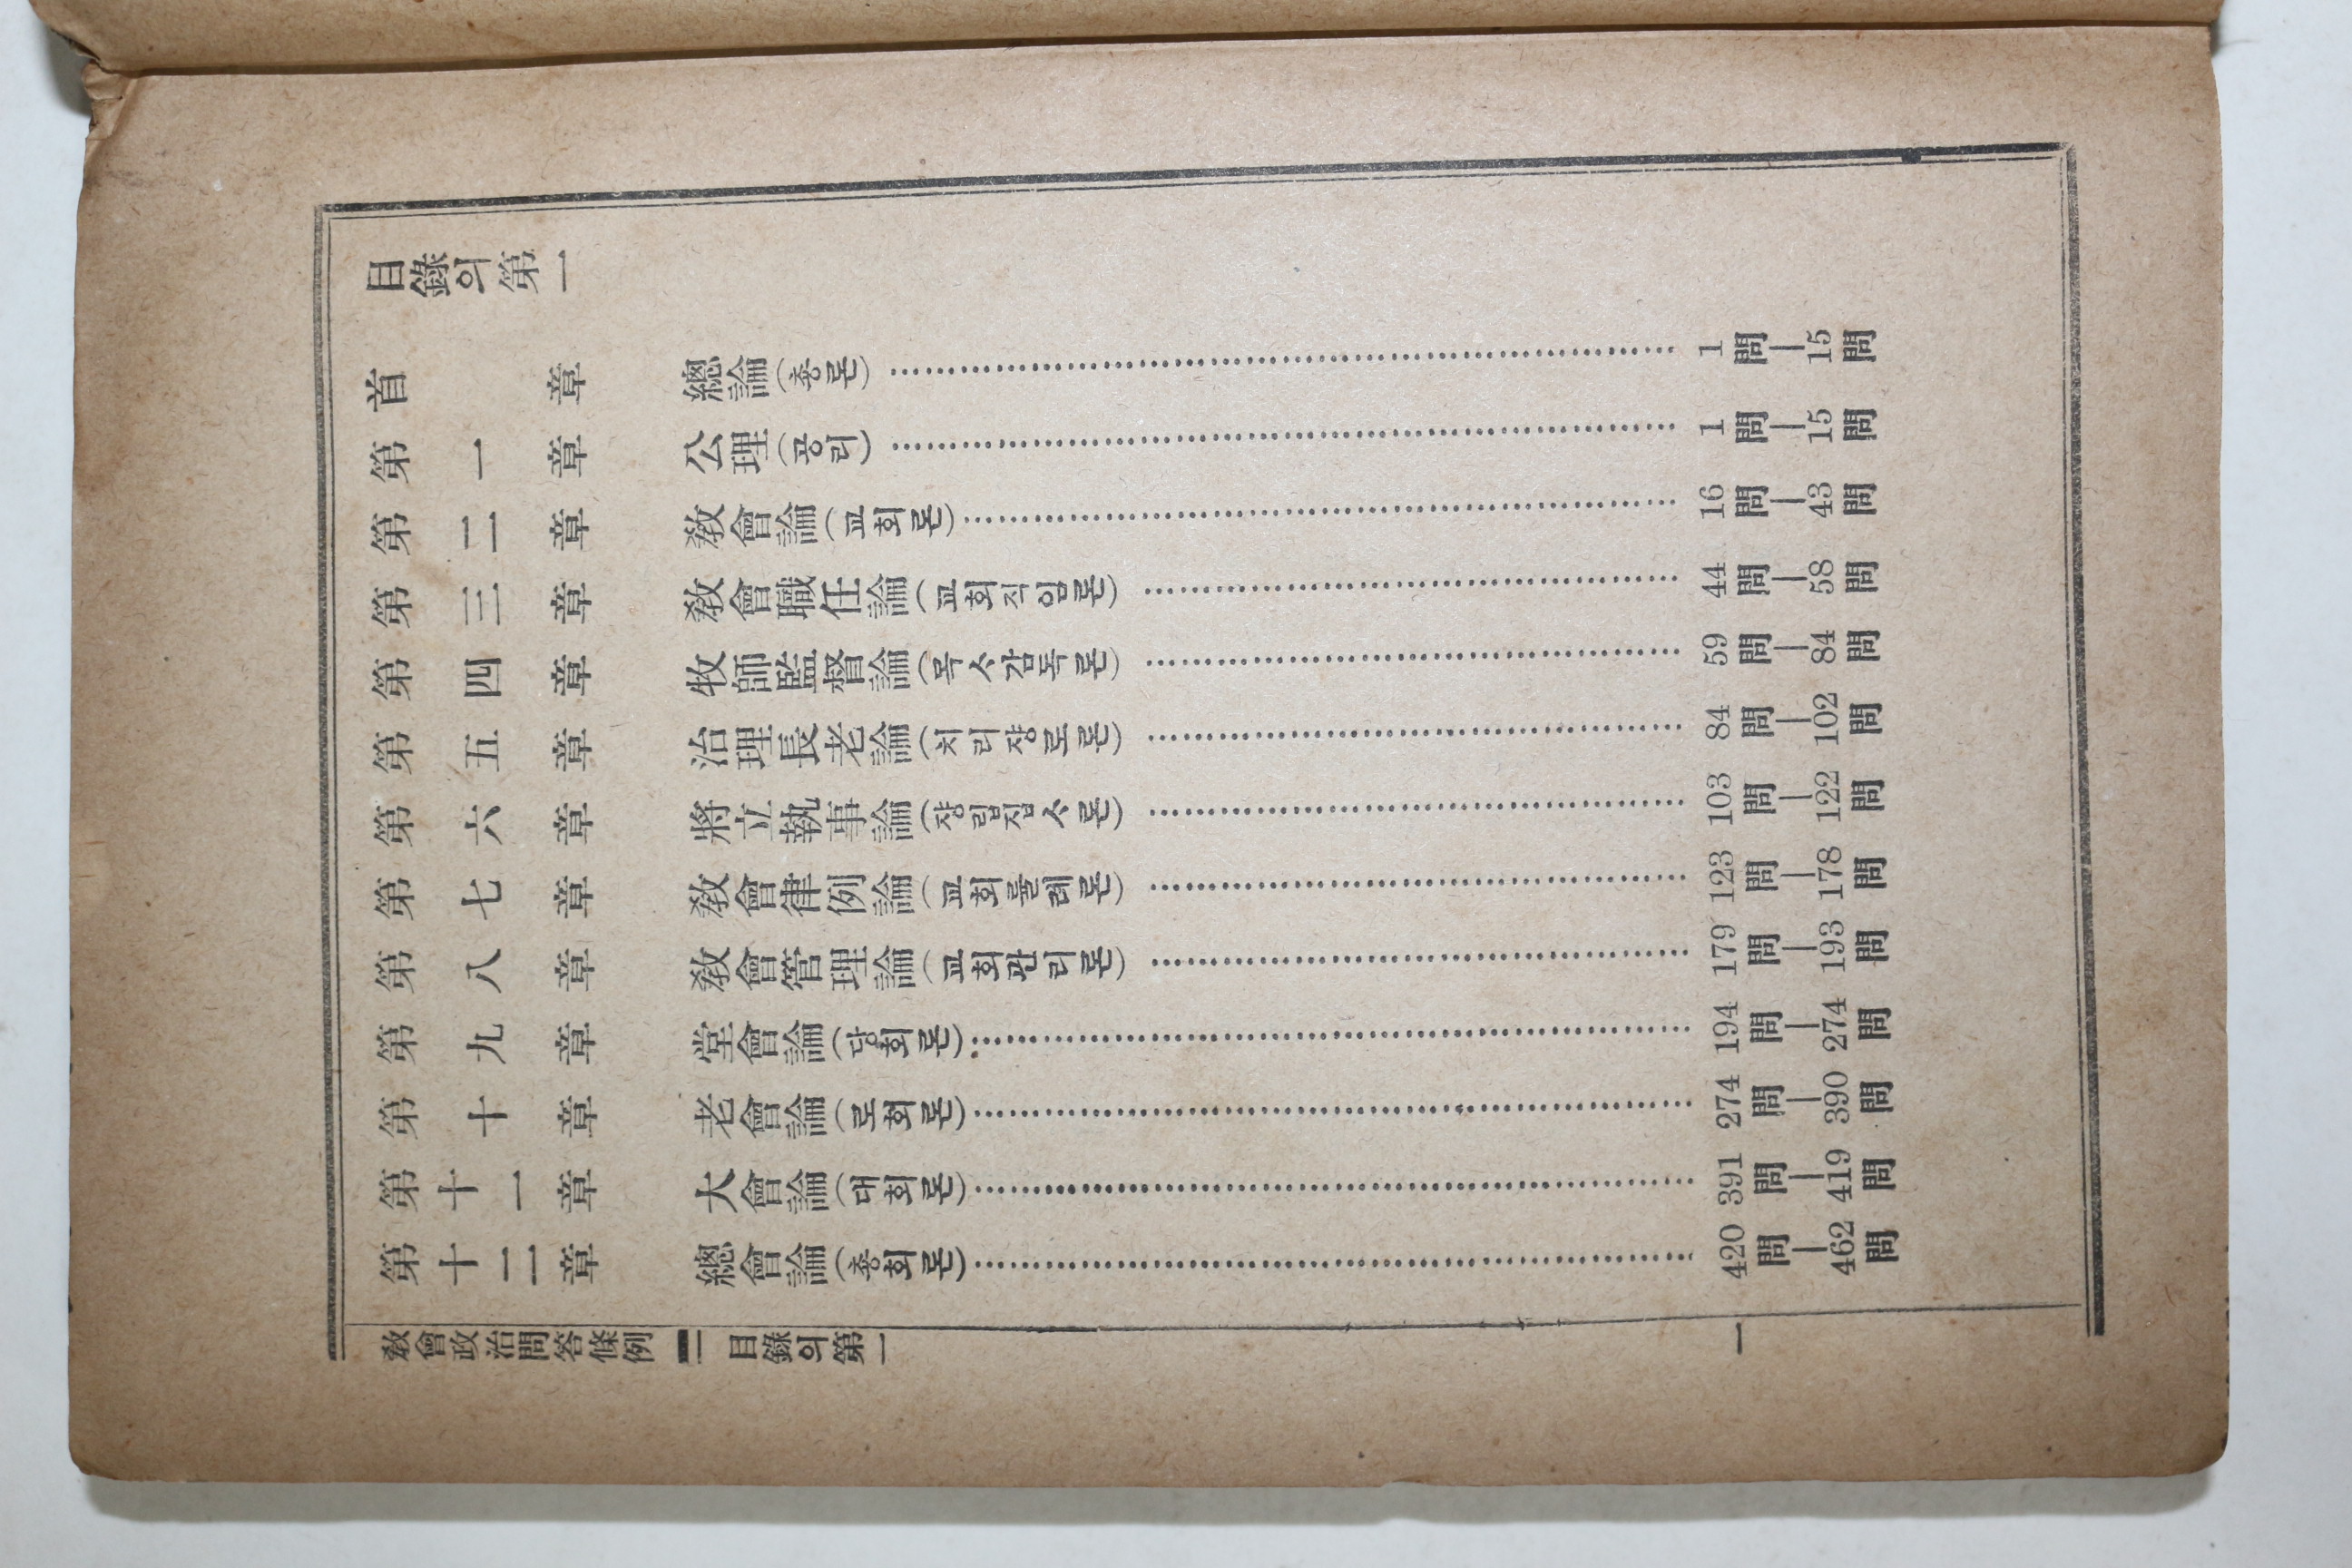 目錄의第一
首章 總論(총론)……1問—15問
第一章 公理(공리)……1問—15問
第二章 敎會論(교회론)……16問—43問
第三章 敎會職任論(교회직임론)……44問—58問
第四章 牧師監督論(목ᄉ감독론)……59問—84問
第五章 治理長老論(치리쟝로론)……84問—102問
第六章 將立執事論(쟝립집ᄉ론)……103問—122問
第七章 敎會律例論(교회률례론)……123問—178問
第八章 敎會管理論(교회관리론)……179問—193問
第九章 堂會論(당회론)……194問—274問
第十章 老會論(로회론)……274問—390問
第十一章 大會論(대회론)……391問—419問
第十二章 總會論(총회론)……420問—462問
敎會政治問答條例 目錄의第一 一